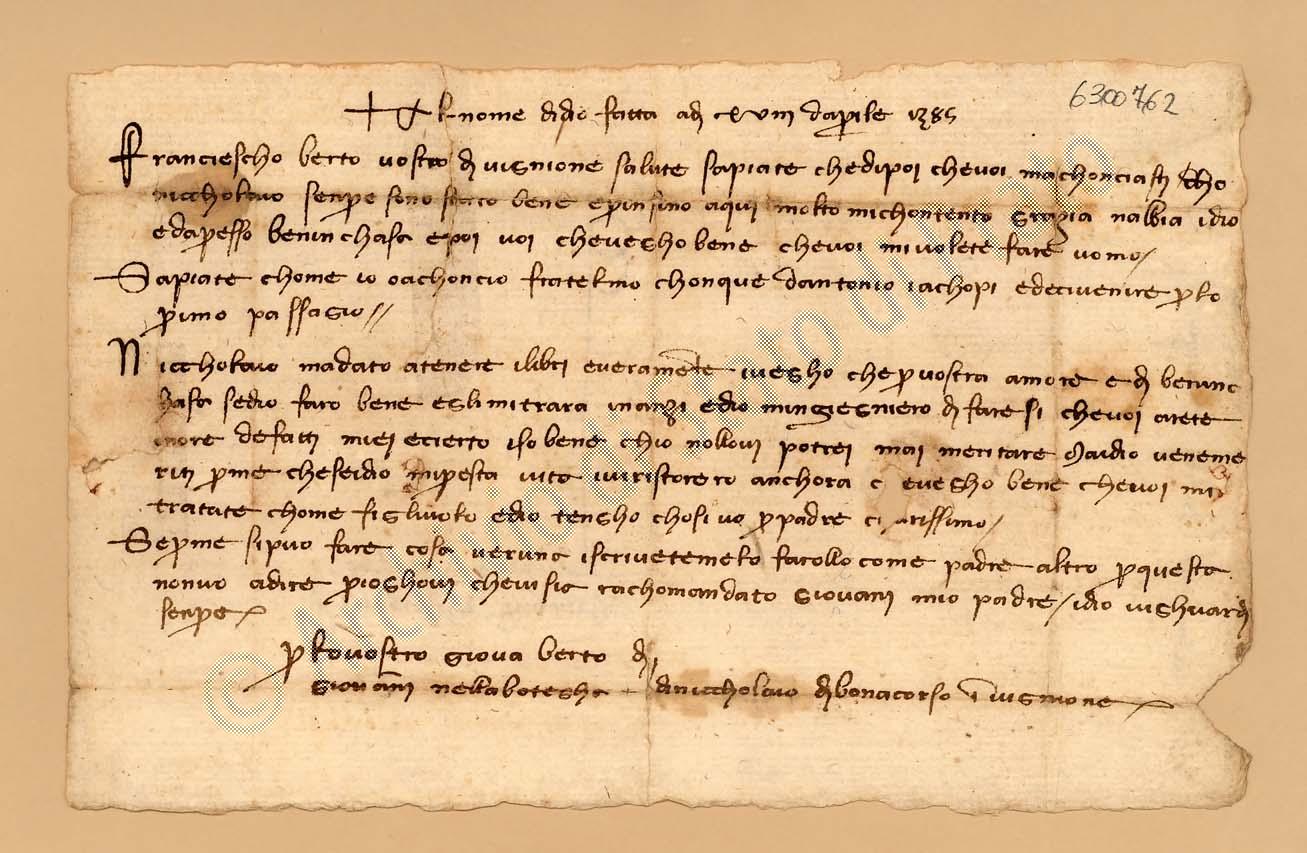 6300762
+ Al nome di dio fatta adi xviii daprile 1385
Franciescho berto vostro di vignione salute sapiate chedipoi chevoi machonciasti cho
niccholaio senpre sono stato bene eprinsino aqui molto michontento grazia nabbia idio
edapresso beninchasa epoi voi cheveghobene chevoi mivolete fare uomo/
Sapiate chome io oachoncio fratelmo chonque dantonio iachopi edecivenire prlo
primo passagio//
Niccholaio madato atenere ilibri everamente ivegho cheprvostra amore e di
sedio faro bene eglimitrara inanzi edio mingiegniero di faresi chevoi arete
more defatti miei ecierto iso bene chio nollovi potrei mai meritare Maidio veneme
riti prme cheseidio mipresta vita viristorero anchora evegho bene chevoi mi
tratate chome figlivolo edio tengho chosi vo prpadre
Seprme sipuo fare cosa veruna iscrivetemelo farollo come padre altro prquesta
nonvo adire prioghovi chevisia rachomandato giovani mio padre/idio vighuardi
senpre
prlovostro giova berto di
giovanni nellabotegha diniccholaio dibonacorso in vignione
© Archivio di Stato di Prato